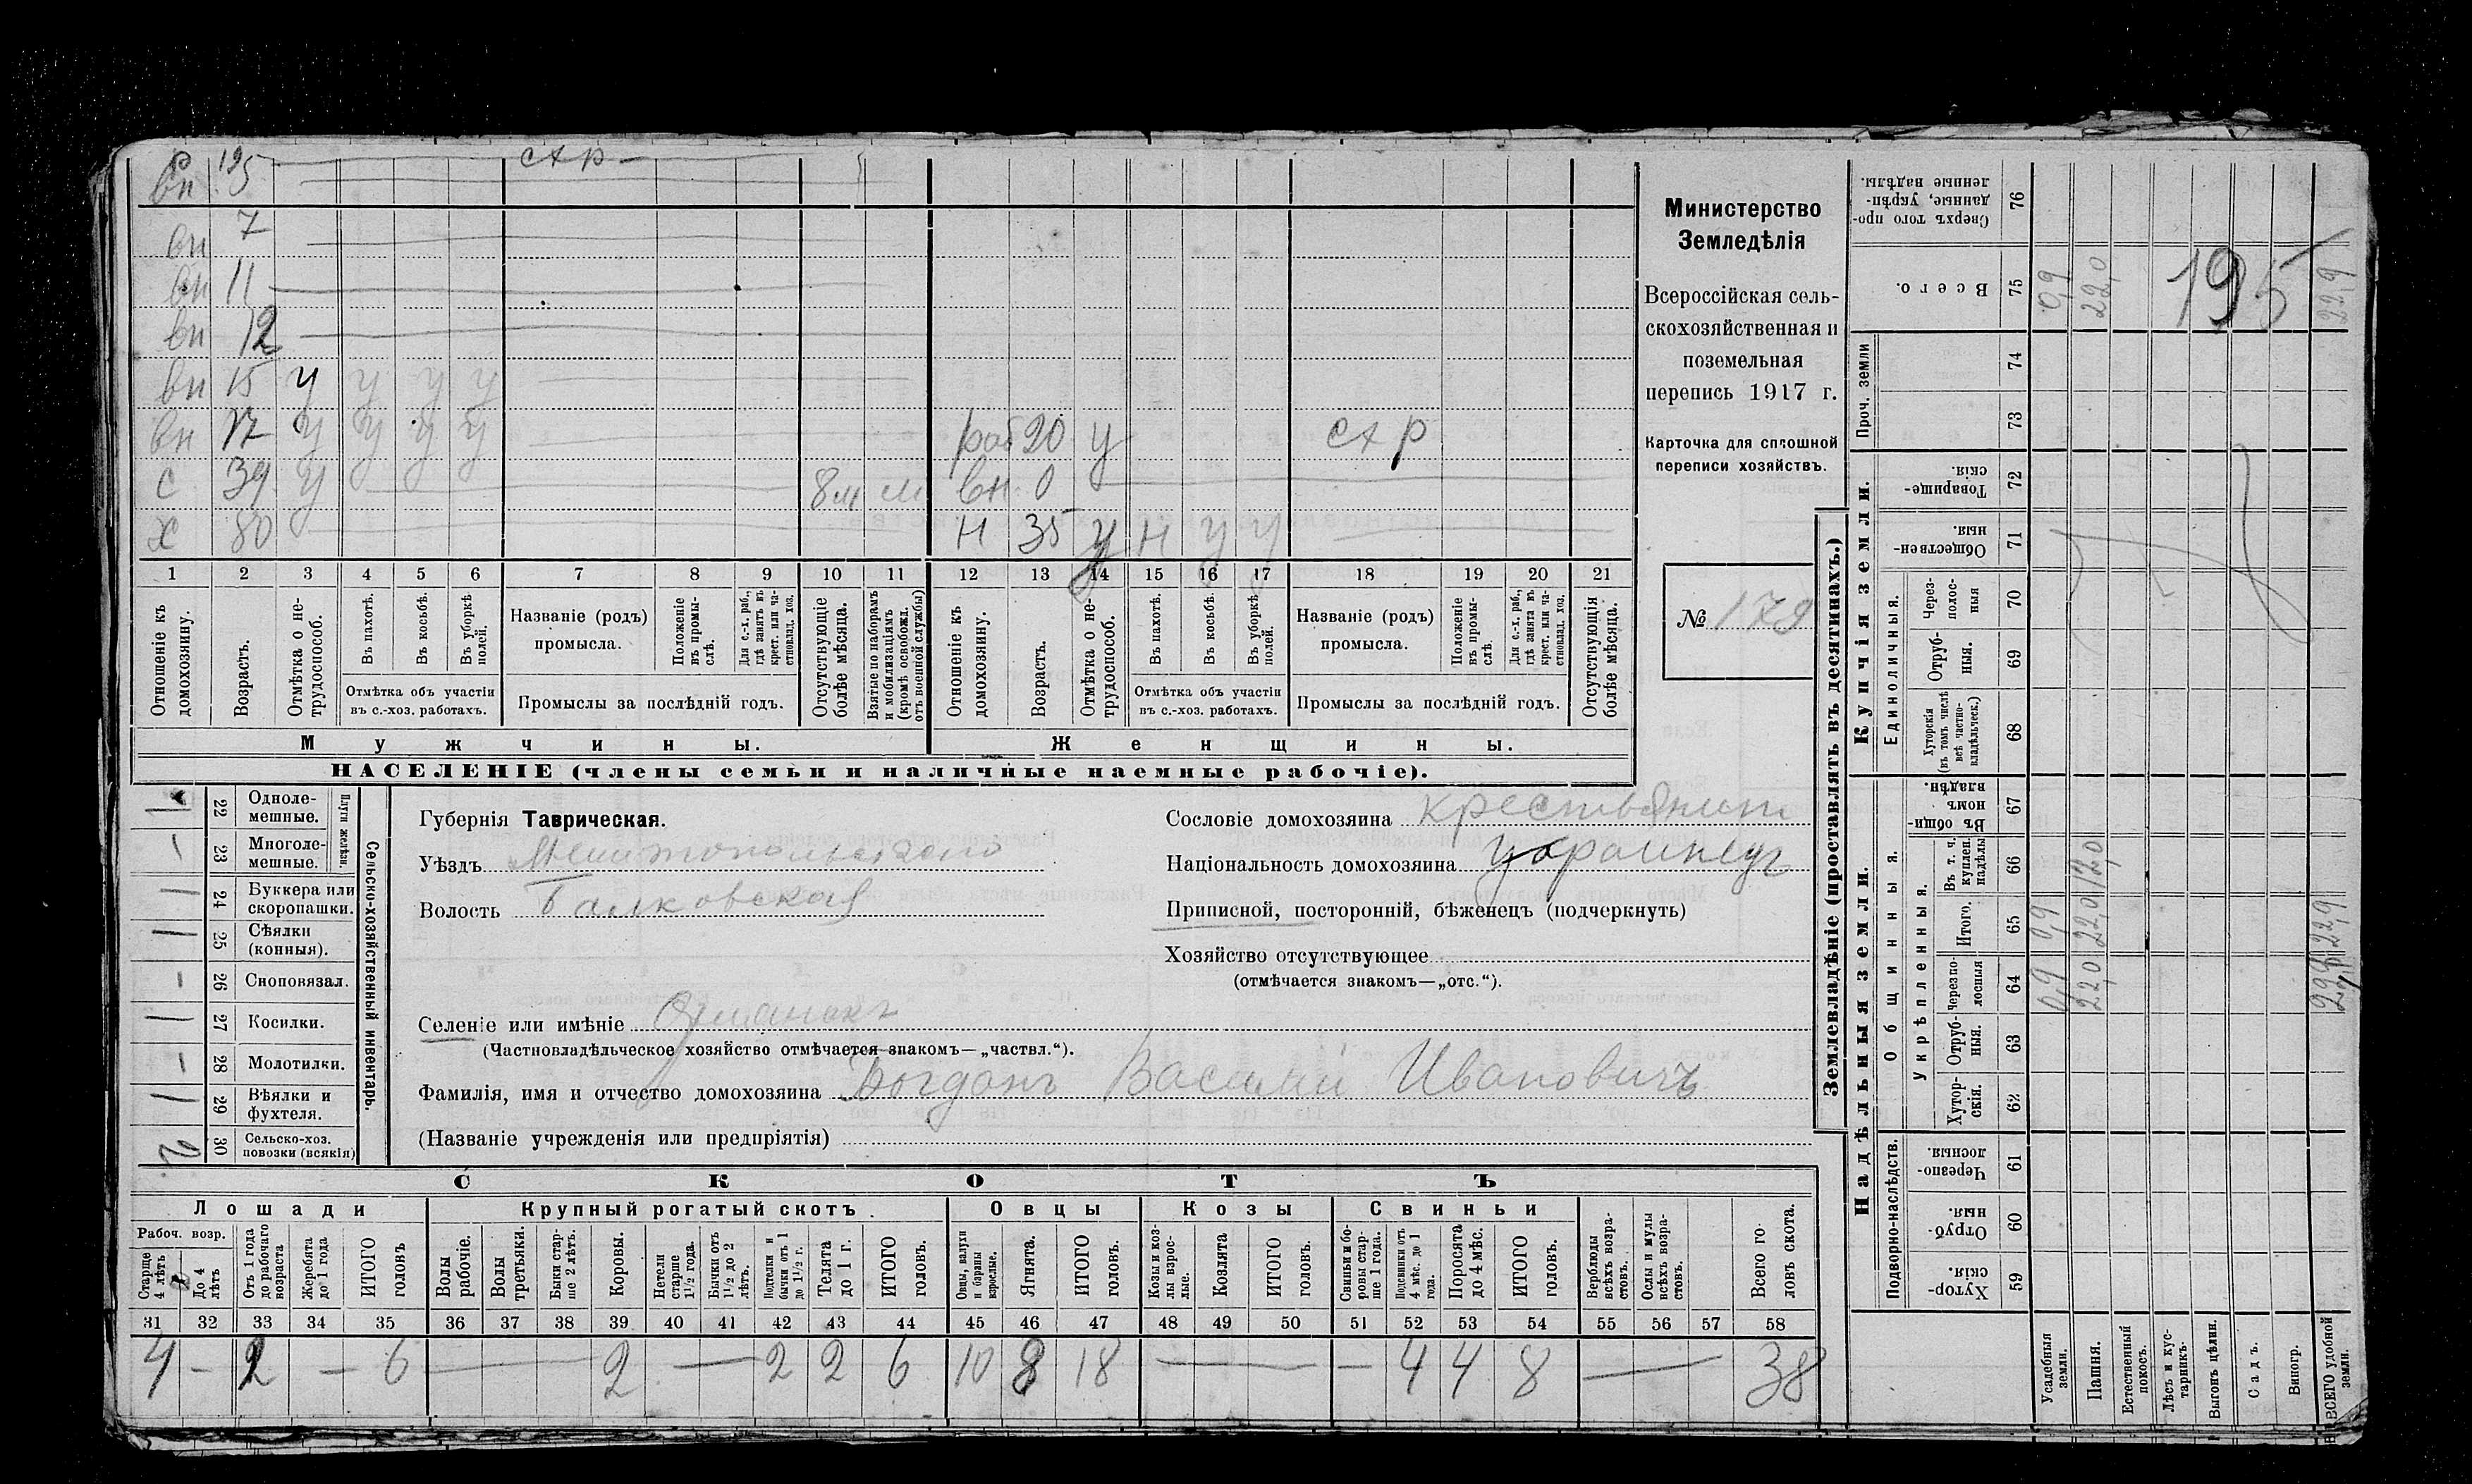 вн 195 стр
вн 7
вн 11
вн 12
вн 15 у у у у
вн 17 у у у у раб 20 у стр
с 39 у 8м м вн 0
х 80 н 35 у н у у
1 2 3 4 5 6 7 8 9 10 11 12 13 14 15 16 17 18 19 20 21
Отношеніе къ домохозяину.
Возрастъ.
Отмѣтка о нетрудоспособ.
Въ пахотѣ.
Въ косьбѣ.
Въ уборкѣ полей.
Отмѣтка объ участіи въ с.-хоз. работахъ.
Названіе (родъ) промысла.
Положеніе въ промыслѣ.
Для с.-х. раб., гдѣ занятъ въ крест. или частновлад. хоз.
Промыслы за послѣдній годъ.
Отсутствующіе болѣе мѣсяца.
Взятые по наборамъ и мобилизаціямъ (кромѣ освобожд. отъ военной службы)
Отношеніе къ домохозяину.
Возрастъ.
Отмѣтка о нетрудоспособ.
Въ пахотѣ.
Въ косьбѣ.
Въ уборкѣ полей.
Отмѣтка объ участіи въ с.-хоз. работахъ.
Названіе (родъ) промысла.
Положеніе въ промыслѣ.
Для с.-х. раб., гдѣ занята въ крест. или частновлад. хоз.
Промыслы за послѣдній годъ.
Отсутствующія болѣе мѣсяца.
Мужчины. Женщины.
НАСЕЛЕНІЕ (члены семьи и наличные наемные рабочіе).
Министерство
Земледѣлія
Всероссійская сель-
скохозяйственная и
поземельная
перепись 1917 г.
Карточка для сплошной
переписи хозяйствъ.
№ 179
22 Однолемешные.
23 Многолемешные.
Плуги желѣзн.
24 Буккера или скоропашки.
25 Сѣялки (конныя).
26 Сноповязал.
27 Косилки.
28 Молотилки.
29 Вѣялки и фухтеля.
30 Сельско-хоз. повозки (всякія) 2
Сельско-хозяйственный инвентарь.
Губернія Таврическая.
Уѣздъ Мелитопольскаго
Волость Балковская
Сословіе домохозяина крестьянинъ
Національность домохозяина украинецъ
Приписной, посторонній, бѣженецъ (подчеркнуть)
Хозяйство отсутствующее
(отмѣчается знакомъ—„отс.“).
Селеніе или имѣніе
(Частновладѣльческое хозяйство отмѣчается знакомъ—„частвл.“).
Фамилія, имя и отчество домохозяина Богданъ Василій Ивановичъ
(Названіе учрежденія или предпріятія)
СКОТЪ
Лошади Крупный рогатый скотъ Овцы Козы Свиньи
Рабоч. возр.
Старше 4 лѣтъ
До 4 лѣтъ
Отъ 1 года до рабочаго возраста
Жеребята до 1 года
ИТОГО головъ
Волы рабочіе.
Волы третьяки.
Быки старше 2 лѣтъ.
Коровы.
Нетели старше 1½ года.
Бычки отъ 1½ до 2 лѣтъ.
Подтелки и бычки отъ 1 до 1½ г.
Телята до 1 г.
ИТОГО головъ.
Овцы, валухи и бараны взрослые.
Ягнята.
ИТОГО головъ.
Козы и козлы взрослые.
Козлята
ИТОГО головъ.
Свиньи и боровы старше 1 года.
Подсвинки отъ 4 мѣс. до 1 года.
Поросята до 4 мѣс.
ИТОГО головъ.
Верблюды всѣхъ возрастовъ.
Ослы и мулы всѣхъ возрастовъ.
Всего головъ скота.
31 32 33 34 35 36 37 38 39 40 41 42 43 44 45 46 47 48 49 50 51 52 53 54 55 56 57 58
4 — 2 — 6 — 2 — 2 2 6 10 8 18 — — 4 4 8 — 38
Землевладѣніе (проставлять въ десятинахъ.)
Надѣльныя земли. Купчія земли. Проч. земли
Подворно-наслѣдств.
Общинныя.
Укрѣпленныя.
Единоличныя.
59 Хуторскія.
60 Отрубныя.
61 Черезполосныя.
62 Хуторскія.
63 Отрубныя.
64 Черезполосныя 0,9 22,0
65 Итого. 0,9 22,0 22,9
66 Въ т. ч. куплен. надѣлы 12,0
67 Въ общинномъ владѣн.
68 Хуторскія (въ томъ числѣ всѣ частновладѣльческ.)
69 Отрубныя.
70 Черезполосныя
71 Общественныя.
72 Товарищескія.
73
74
75 Всего. 0,9 22,0 195 22,9
76 Сверхъ того проданные, укрѣпленные надѣлы.
Усадебныя земли.
Пашня.
Естественный покосъ.
Лѣсъ и кустарникъ.
Выгонъ цѣлин.
Садъ.
Виногр.
ВСЕГО удобной земли.